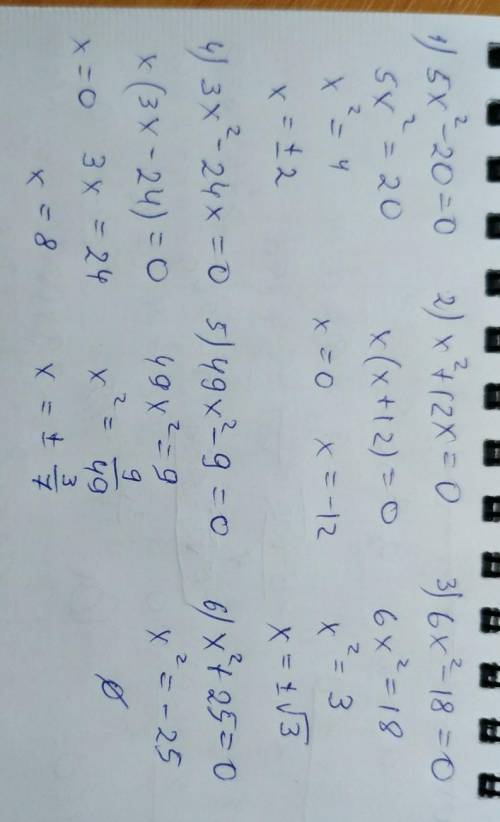 1) 5x² - 20 = 0
5x² = 20
x² = 4
x = ± 2
2) x² + 12x = 0
x(x + 12) = 0
x = 0 x = -12
3) 6x² - 18 = 0
6x² = 18
x² = 3
x = ±√3
4) 3x² - 24x = 0
x(3x - 24) = 0
x = 0 3x = 24
x = 8
5) 49x² - 9 = 0
49x² = 9
x² = 9/49
x = ± 3/7
6) x² + 25 = 0
x² = -25
∅